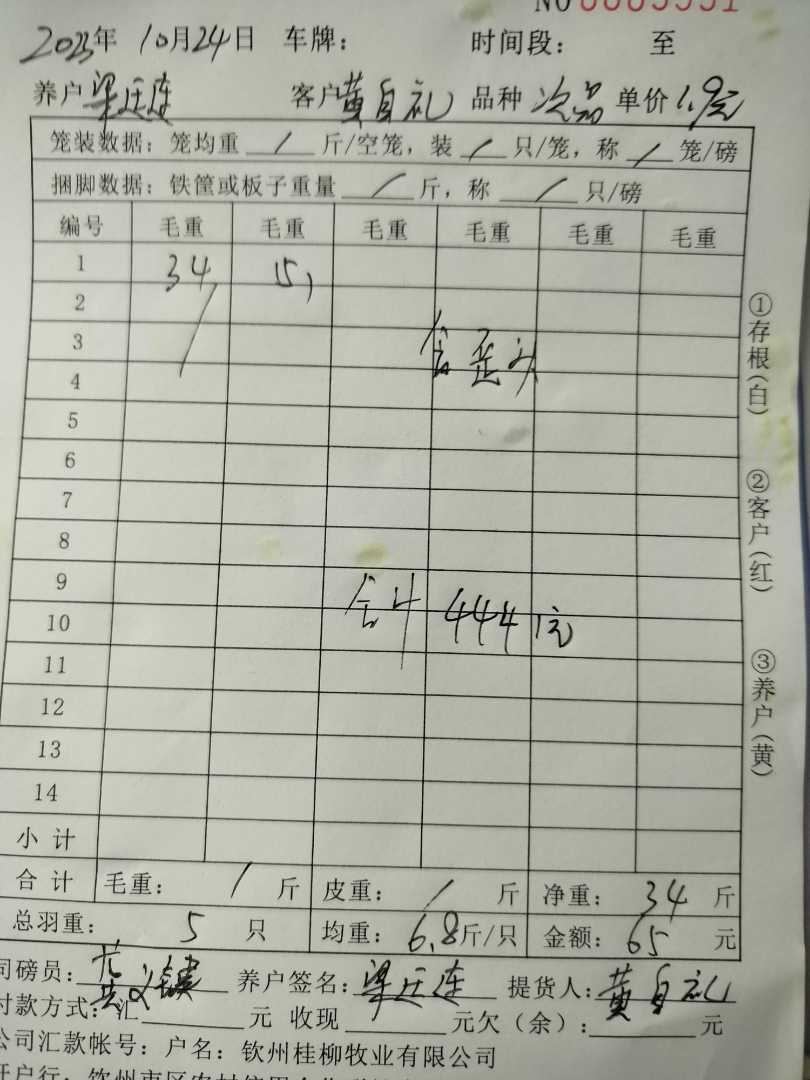 2023年10月24日 车牌: 时间段: 至
养户 梁廷连 客户 黄自礼 品种 次品 单价 1.9元
笼装数据: 笼均重 / 斤/空笼, 装 / 只/笼, 称 / 笼/磅
捆脚数据: 铁筐或板子重量 / 斤, 称 / 只/磅
编号 毛重 毛重 毛重 毛重 毛重 毛重
1 34 5
2
3 歪头
4
5
6
7
8
9
10 合计 444元
11
12
13
14
小计
合计 毛重: / 斤 皮重: / 斤 净重: 34 斤
总羽重: 5 只 均重: 6.8斤/只 金额: 65 元
司磅员: 养户签名: 梁廷连 提货人: 黄自礼
付款方式: 汇 元 收现 元欠(余): 元
公司汇款帐号: 户名: 钦州桂柳牧业有限公司
①存根(白)
②客户(红)
③养户(黄)